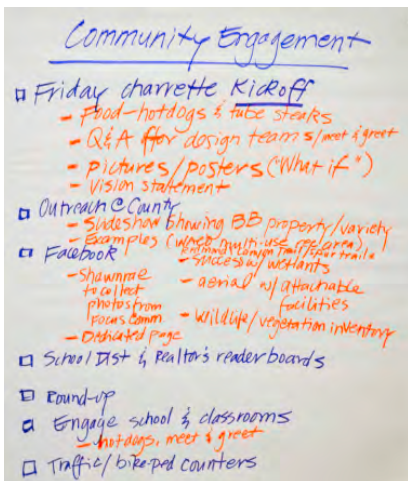 Community Engagement
Friday charrette Kickoff
- Food-hotdogs & tube steaks
- Q&A for design teams/meet & greet
- Pictures/posters ("What if")
- Vision statement
Outreach @ County
- Slideshow showing BB property/variety
- Examples (multi-use off area)
Facebook
- Shawnrae to collect photos from Focus Comm.
- Dedicated page
- Success w/ wetlants
- aerial w/ attachable facilities
- Wildlife/vegetation inventory
School Dist & Realtor's reader boards
Round-up
Engage school & classrooms
- hotdogs, meet & greet
Traffic/bike-ped counters